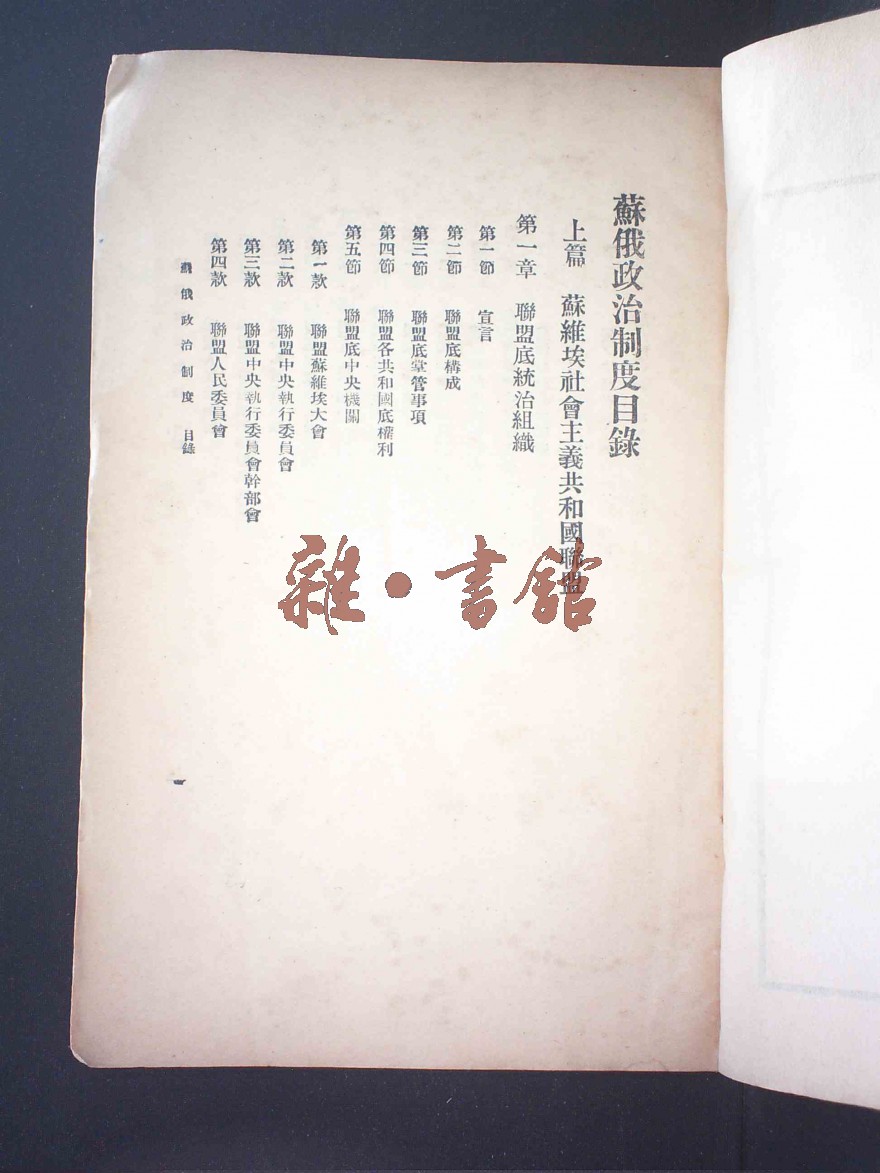 蘇俄政治制度目錄
上篇 蘇維埃社會主義共和國聯盟
第一章 聯盟底統治組織
第一節 宣言
第二節 聯盟底構成
第三節 聯盟底掌管事項
第四節 聯盟各共和國底權利
第五節 聯盟底中央機關
第一款 聯盟蘇維埃大會
第二款 聯盟中央執行委員會
第三款 聯盟中央執行委員會幹部會
第四款 聯盟人民委員會
蘇俄政治制度 目錄
一
雜·書館